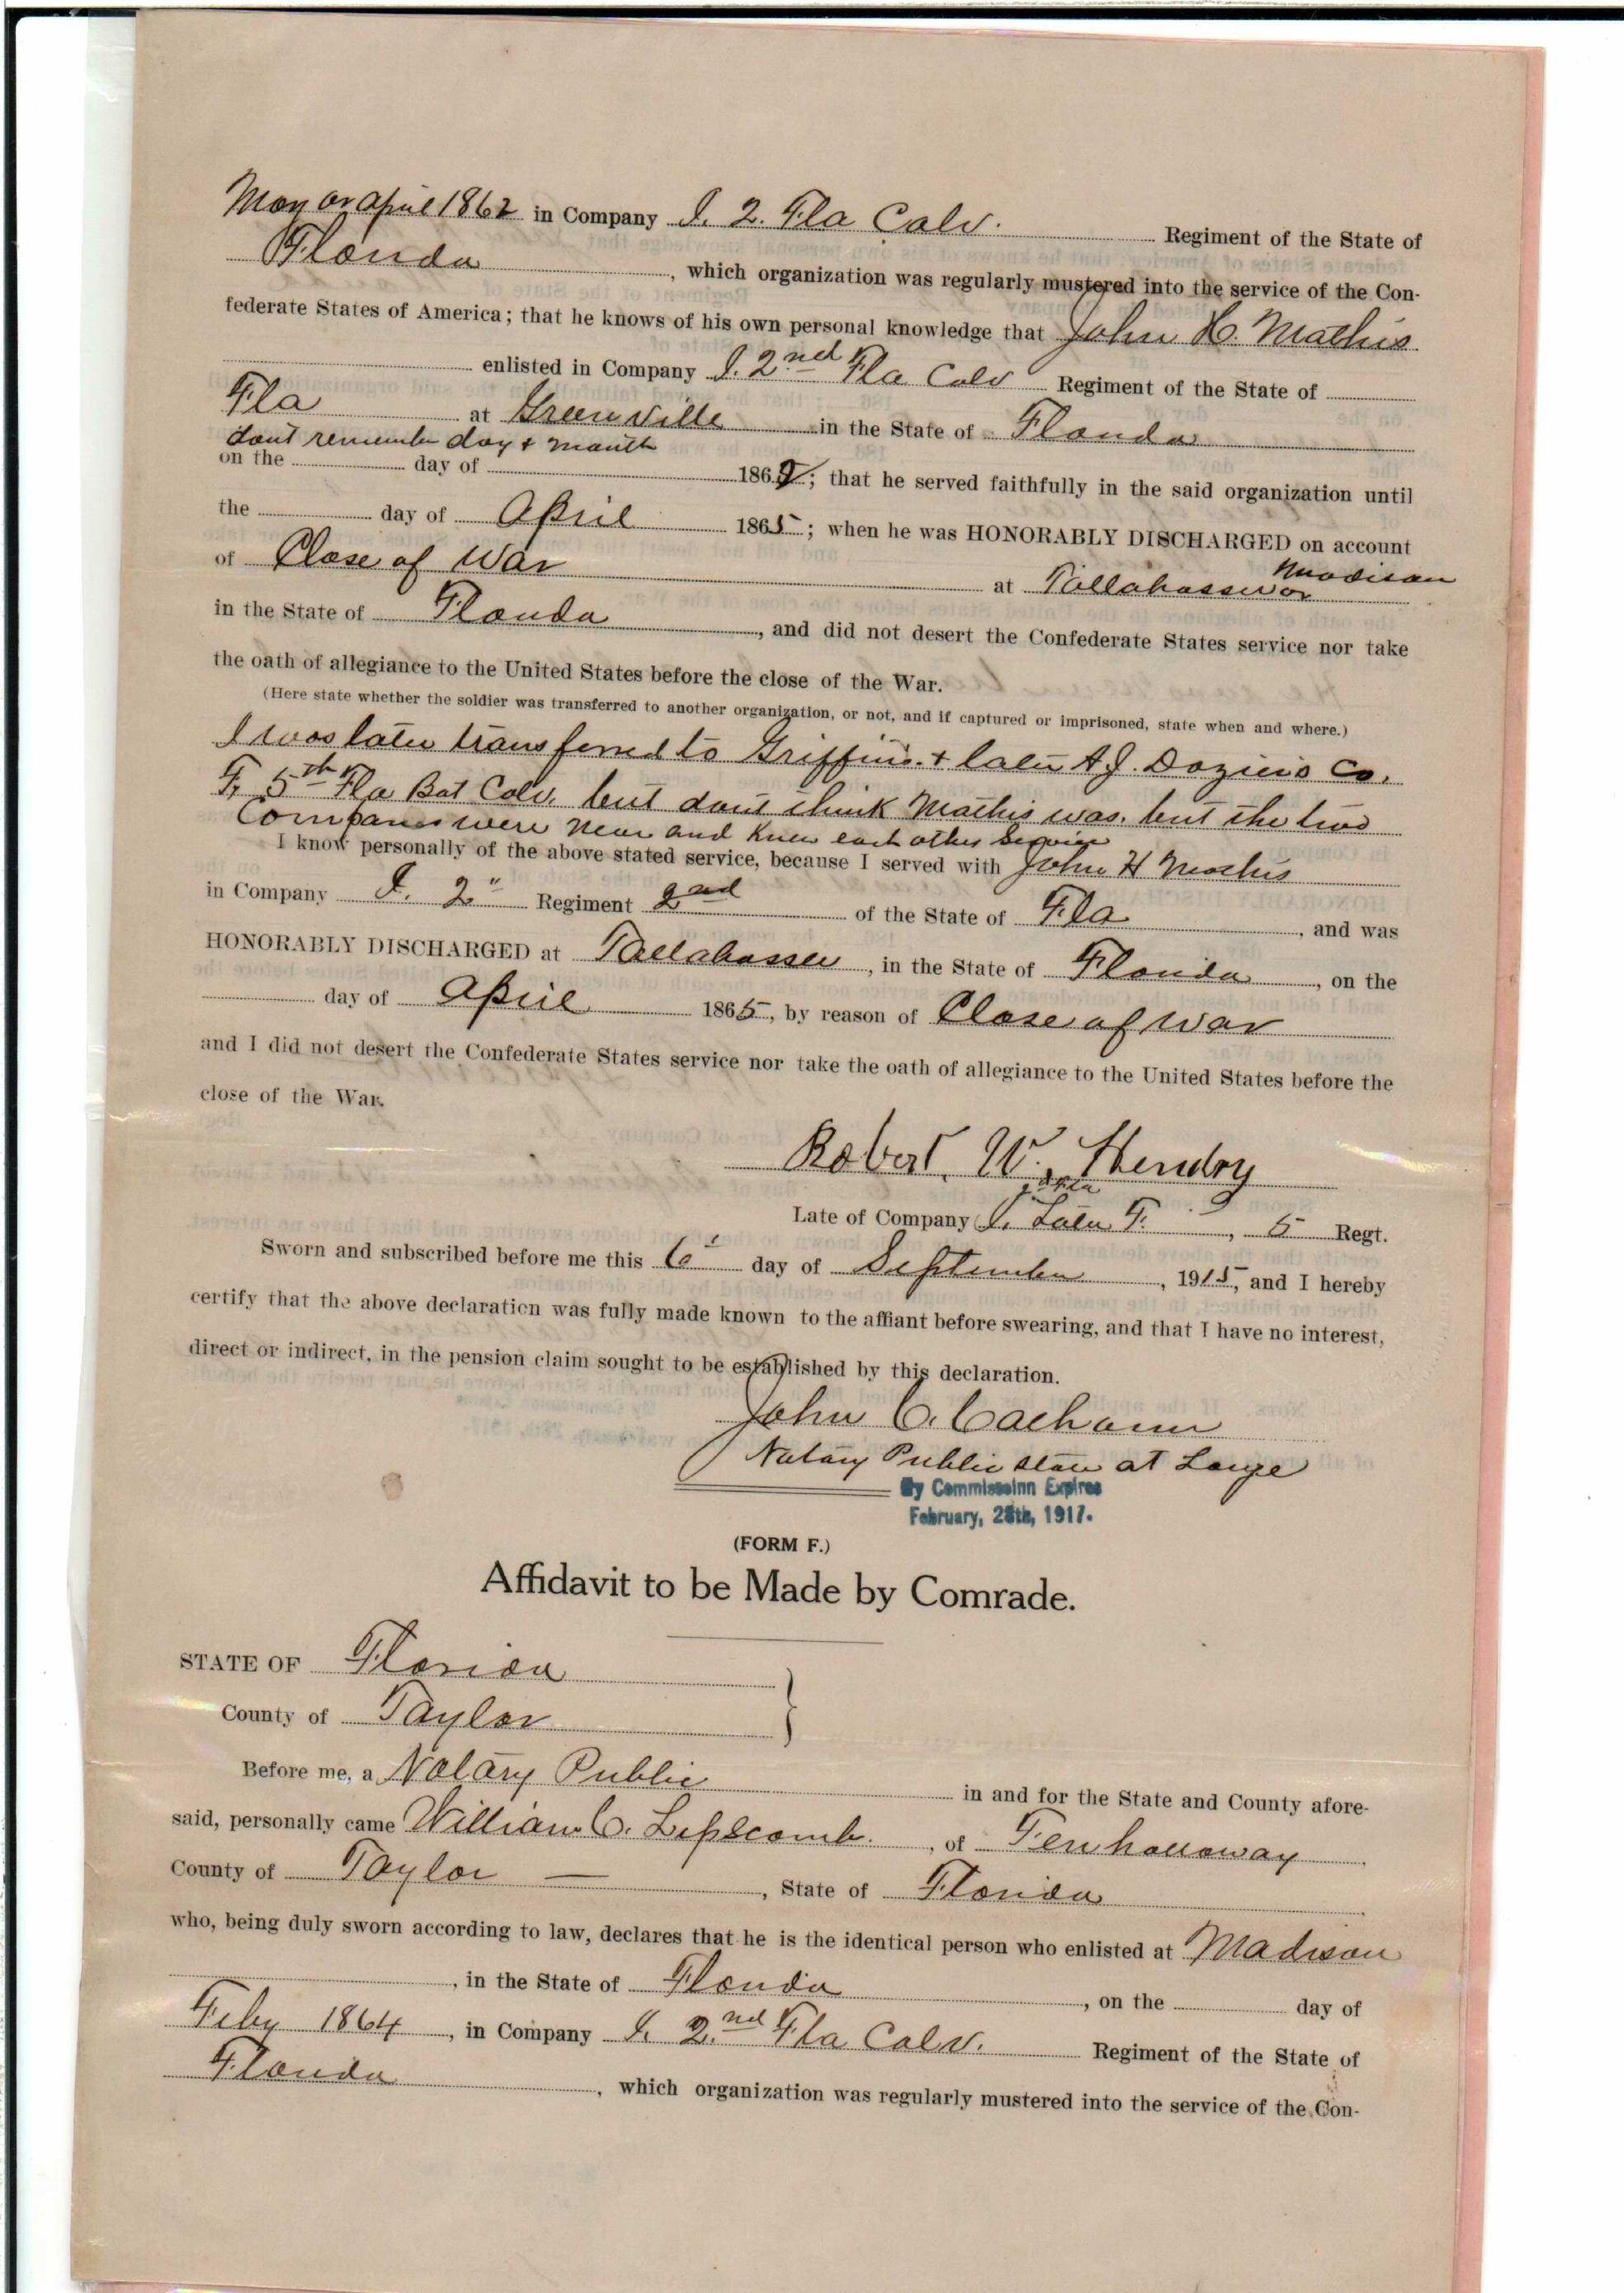 May or April 1862 in Company I. 2. Fla Calv. Regiment of the State of
Florida, which organization was regularly mustered into the service of the Con-
federate States of America; that he knows of his own personal knowledge that John H. Mathis
enlisted in Company I. 2nd Fla Calv Regiment of the State of
Fla at Greenville in the State of Florida
dont remember day & month
on the day of 1862; that he served faithfully in the said organization until
the day of April 1865; when he was HONORABLY DISCHARGED on account
of Close of War at Tallahassee or Madison
in the State of Florida, and did not desert the Confederate States service nor take
the oath of allegiance to the United States before the close of the War.
(Here state whether the soldier was transferred to another organization, or not, and if captured or imprisoned, state when and where.)
I was later transferred to Griffins. & later A. J. Doziers Co.
F, 5th Fla Bat Calv. but dont think Mathis was. but the two
Companies were near and knew each others Service
I know personally of the above stated service, because I served with John H Mathis
in Company I. 2" Regiment 2nd of the State of Fla, and was
HONORABLY DISCHARGED at Tallahassee, in the State of Florida, on the
day of April 1865, by reason of Close of War
and I did not desert the Confederate States service nor take the oath of allegiance to the United States before the
close of the War.
Robert. W. Hendry
Late of Company I. Later F., 5 Regt.
Sworn and subscribed before me this 6' day of September, 1915, and I hereby
certify that the above declaration was fully made known to the affiant before swearing, and that I have no interest,
direct or indirect, in the pension claim sought to be established by this declaration.
John C. Calhoun
Notary Public State at Large
My Commissoinn Expires
February, 28th, 1917.
(FORM F.)
Affidavit to be Made by Comrade.
STATE OF Florida
County of Taylor
Before me, a Notary Public in and for the State and County afore-
said, personally came William C. Lipscomb., of Fenholloway
County of Taylor —, State of Florida
who, being duly sworn according to law, declares that he is the identical person who enlisted at Madison
, in the State of Florida, on the day of
Feby 1864, in Company I. 2.nd Fla Calv. Regiment of the State of
Florida, which organization was regularly mustered into the service of the Con-